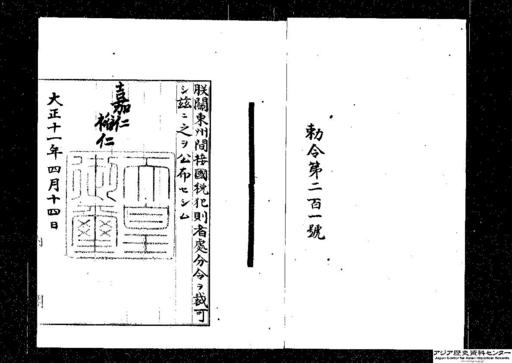 勅令第二百一號
朕關東州間接國税犯則者處分令ヲ裁可
シ茲ニ之ヲ公布セシム
嘉仁
裕仁
天皇御璽
大正十一年四月十四日
アジア歴史資料センター
Japan Center for Asian Historical Records